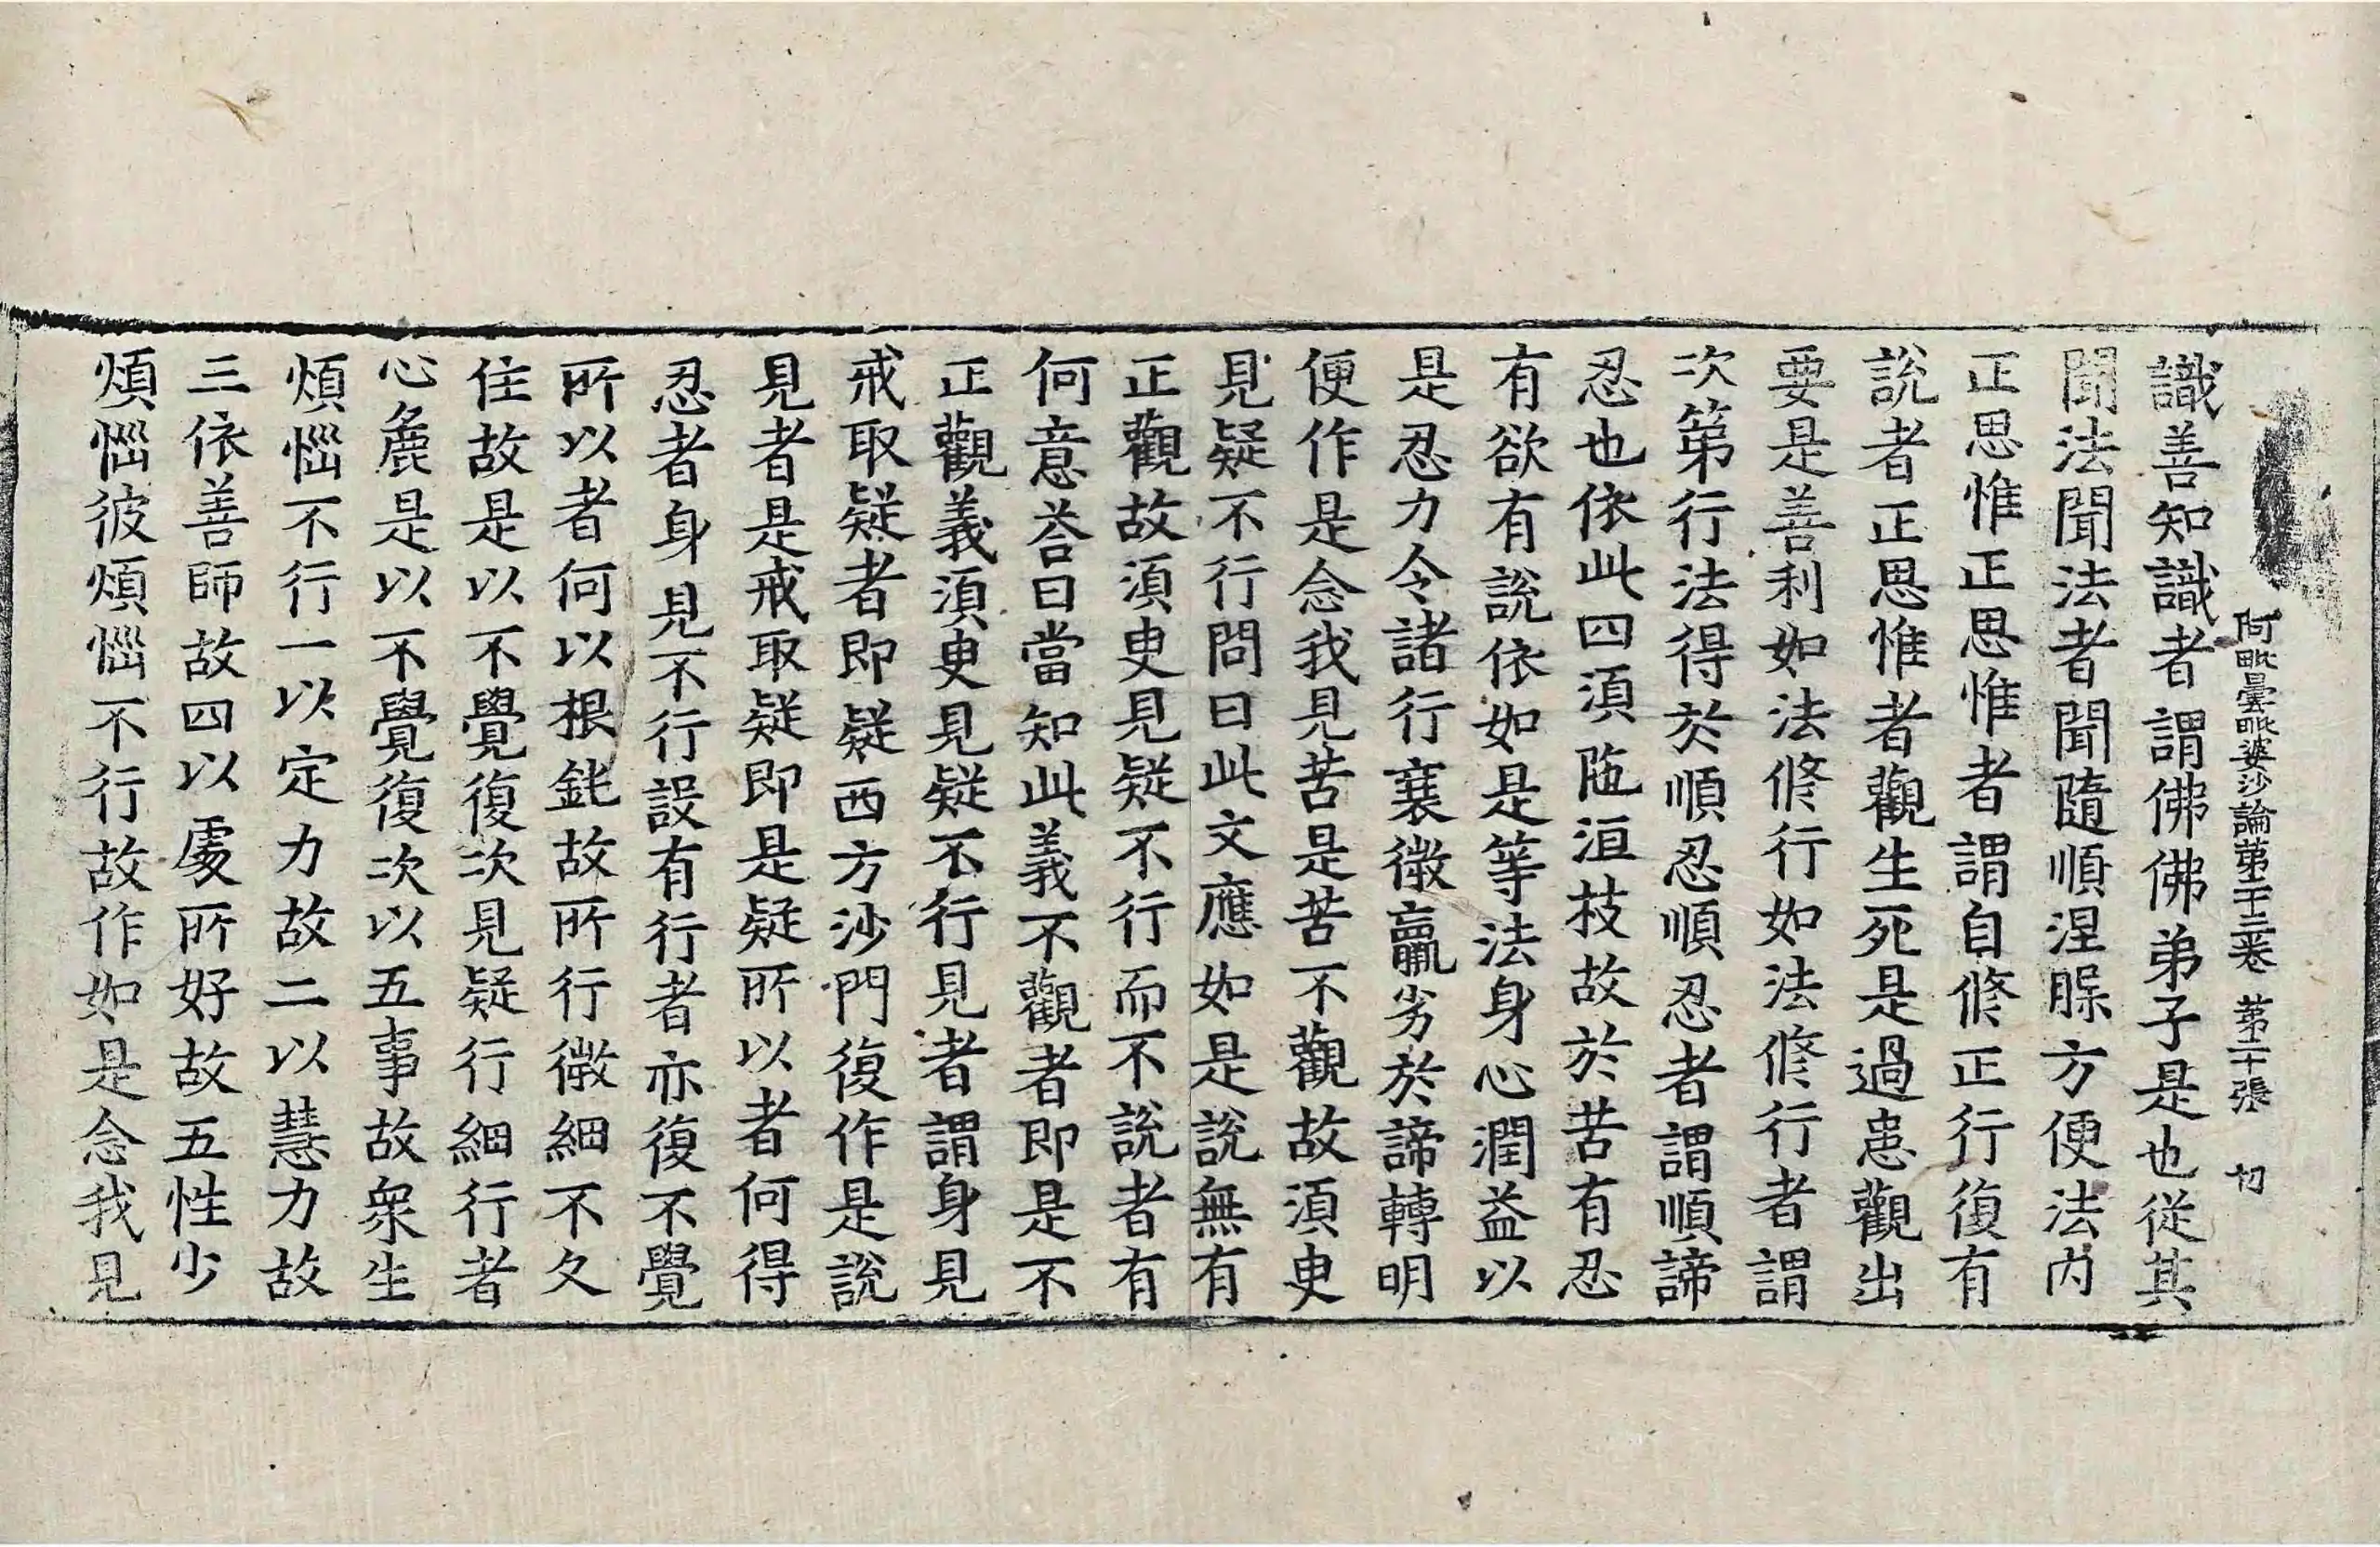 阿毗曇毗婆沙論第二十三卷 第二十張 切
識善知識者謂佛佛弟子是也從其
聞法聞法者聞隨順涅槃方便法內
正思惟正思惟者謂自修正行復有
說者正思惟者觀生死是過患觀出
要是善利如法修行如法修行者謂
次第行法得於順忍順忍者謂順諦
忍也依此四須陁洹枝故於苦有忍
有欲有說依如是等法身心潤益以
是忍力令諸行衰微羸劣於諦轉明
便作是念我見苦是苦不觀故須臾
見疑不行問曰此文應如是說無有
正觀故須臾見疑不行而不說者有
何意荅曰當知此義不觀者即是不
正觀義須臾見疑不行見者謂身見
戒取疑者即疑西方沙門復作是說
見者是戒取疑即是疑所以者何得
忍者身見不行設有行者亦復不覺
所以者何以根鈍故所行微細不久
住故是以不覺復次見疑行細行者
心麁是以不覺復次以五事故衆生
煩惱不行一以定力故二以慧力故
三依善師故四以處所好故五性少
煩惱彼煩惱不行故作如是念我見